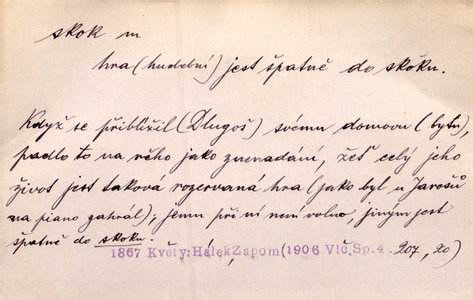 skok m
hra (hudební) jest špatně do skoku.
Když se přiblížil (Dlugoš) svému domovu (bytu),
padlo to na něho jako znenadání, žeť celý jeho
život jest taková rozervaná hra (jako byl u Jarošů
na piano zahrál); jemu při ní není volno, jiným jest
špatně do skoku.
1867 Květy: Hálek, Zapom (1906 Vlč. Sp. 4 207, 20)